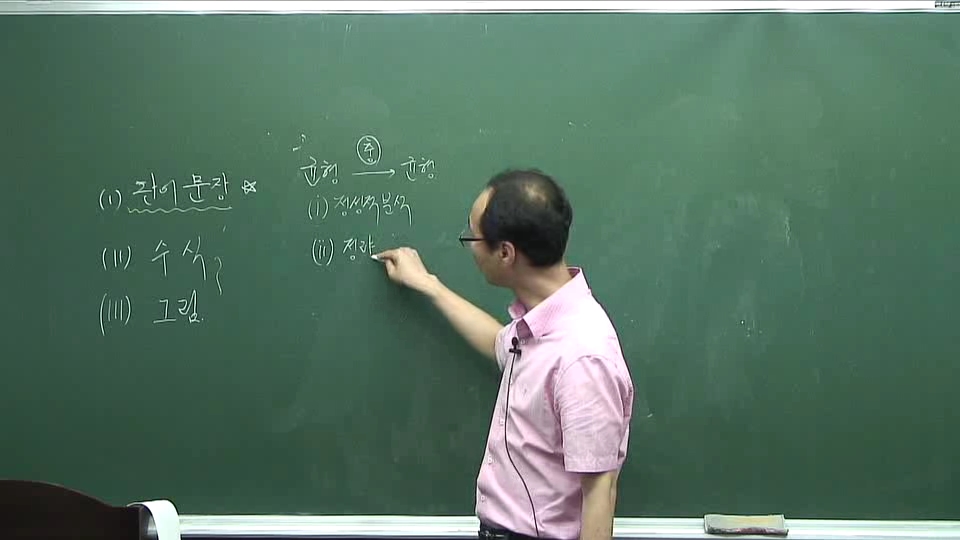 (i) 단어 문장 ☆
(ii) 수식
(iii) 그림.
균형 충 → 균형
(i) 정성적 분석
(ii) 정량